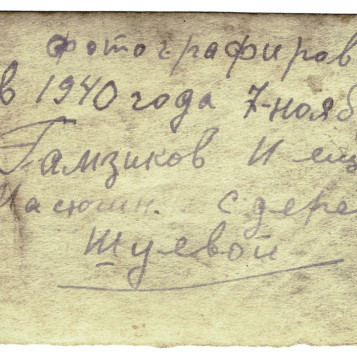 фотографиров
в 1940 года 7-нояб
Гамзиков И
с дере
Шуевой